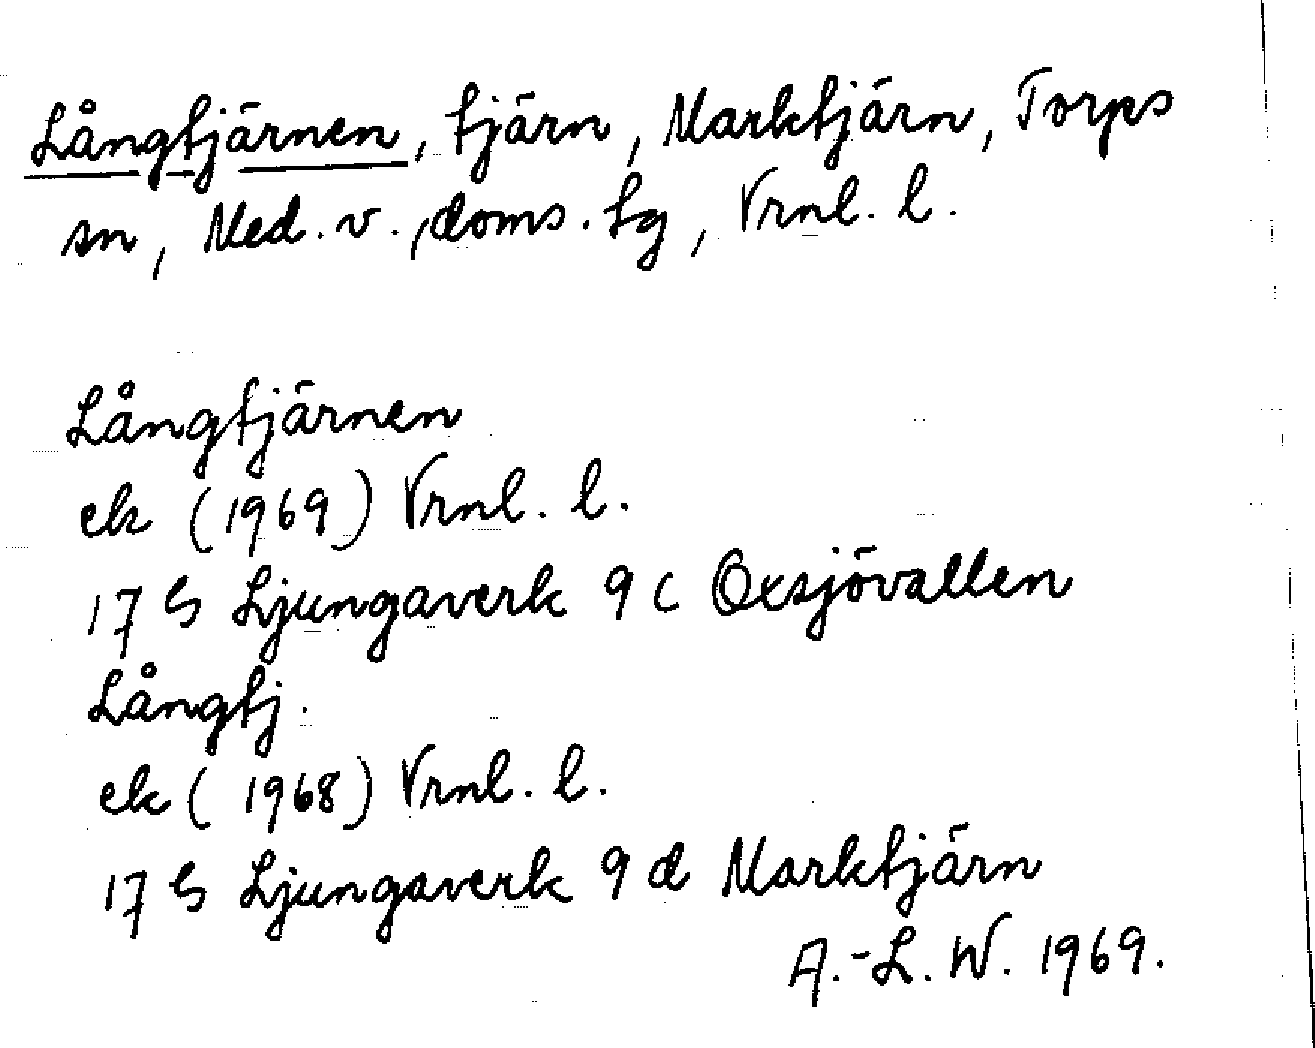 Långtjärnen, tjärn, Marktjärn, Torps
sn, Med. v., doms. tg, Vrnl. l.
Långtjärnen
ek (1969) Vrnl. l.
17 G Ljungaverk 9 c Oxsjövallen
Långtj.
ek (1968) Vrnl. l.
17 G Ljungaverk 9 d Marktjärn
A.-L. W. 1969.